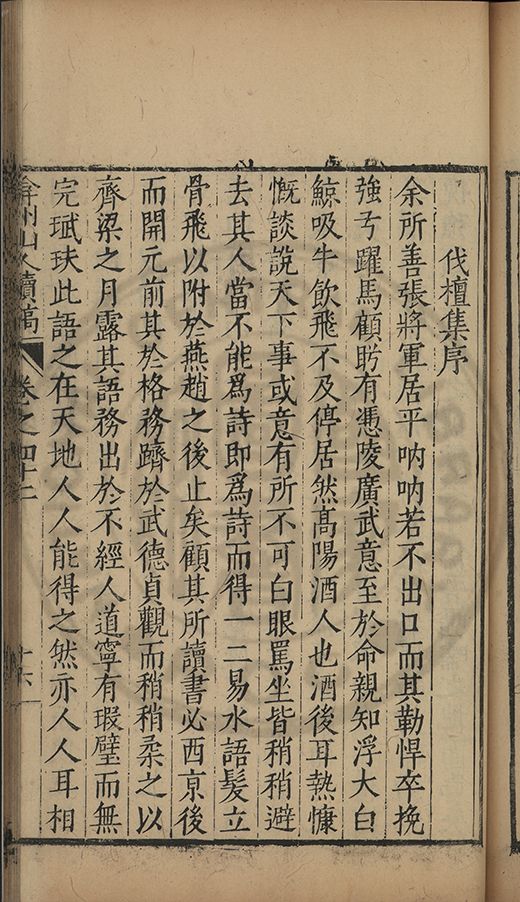 伐檀集序
余所善張將軍居平吶吶若不出口而其勒悍卒挽
強弓躍馬顧眄有憑陵廣武意至於命親知浮大白
鯨吸牛飲飛不及停居然高陽酒人也酒後耳熱慷
慨談說天下事或意有所不可白眼罵坐皆稍稍避
去其人當不能爲詩即爲詩而得一二易水語髮立
骨飛以附於燕趙之後止矣顧其所讀書必西京後
而開元前其於格務躋於武德貞觀而稍稍柔之以
齊梁之月露其語務出於不經人道寧有瑕璧而無
完珷玞此語之在天地人人能得之然亦人人耳相
弇州山人續稿 卷之四十二 十六